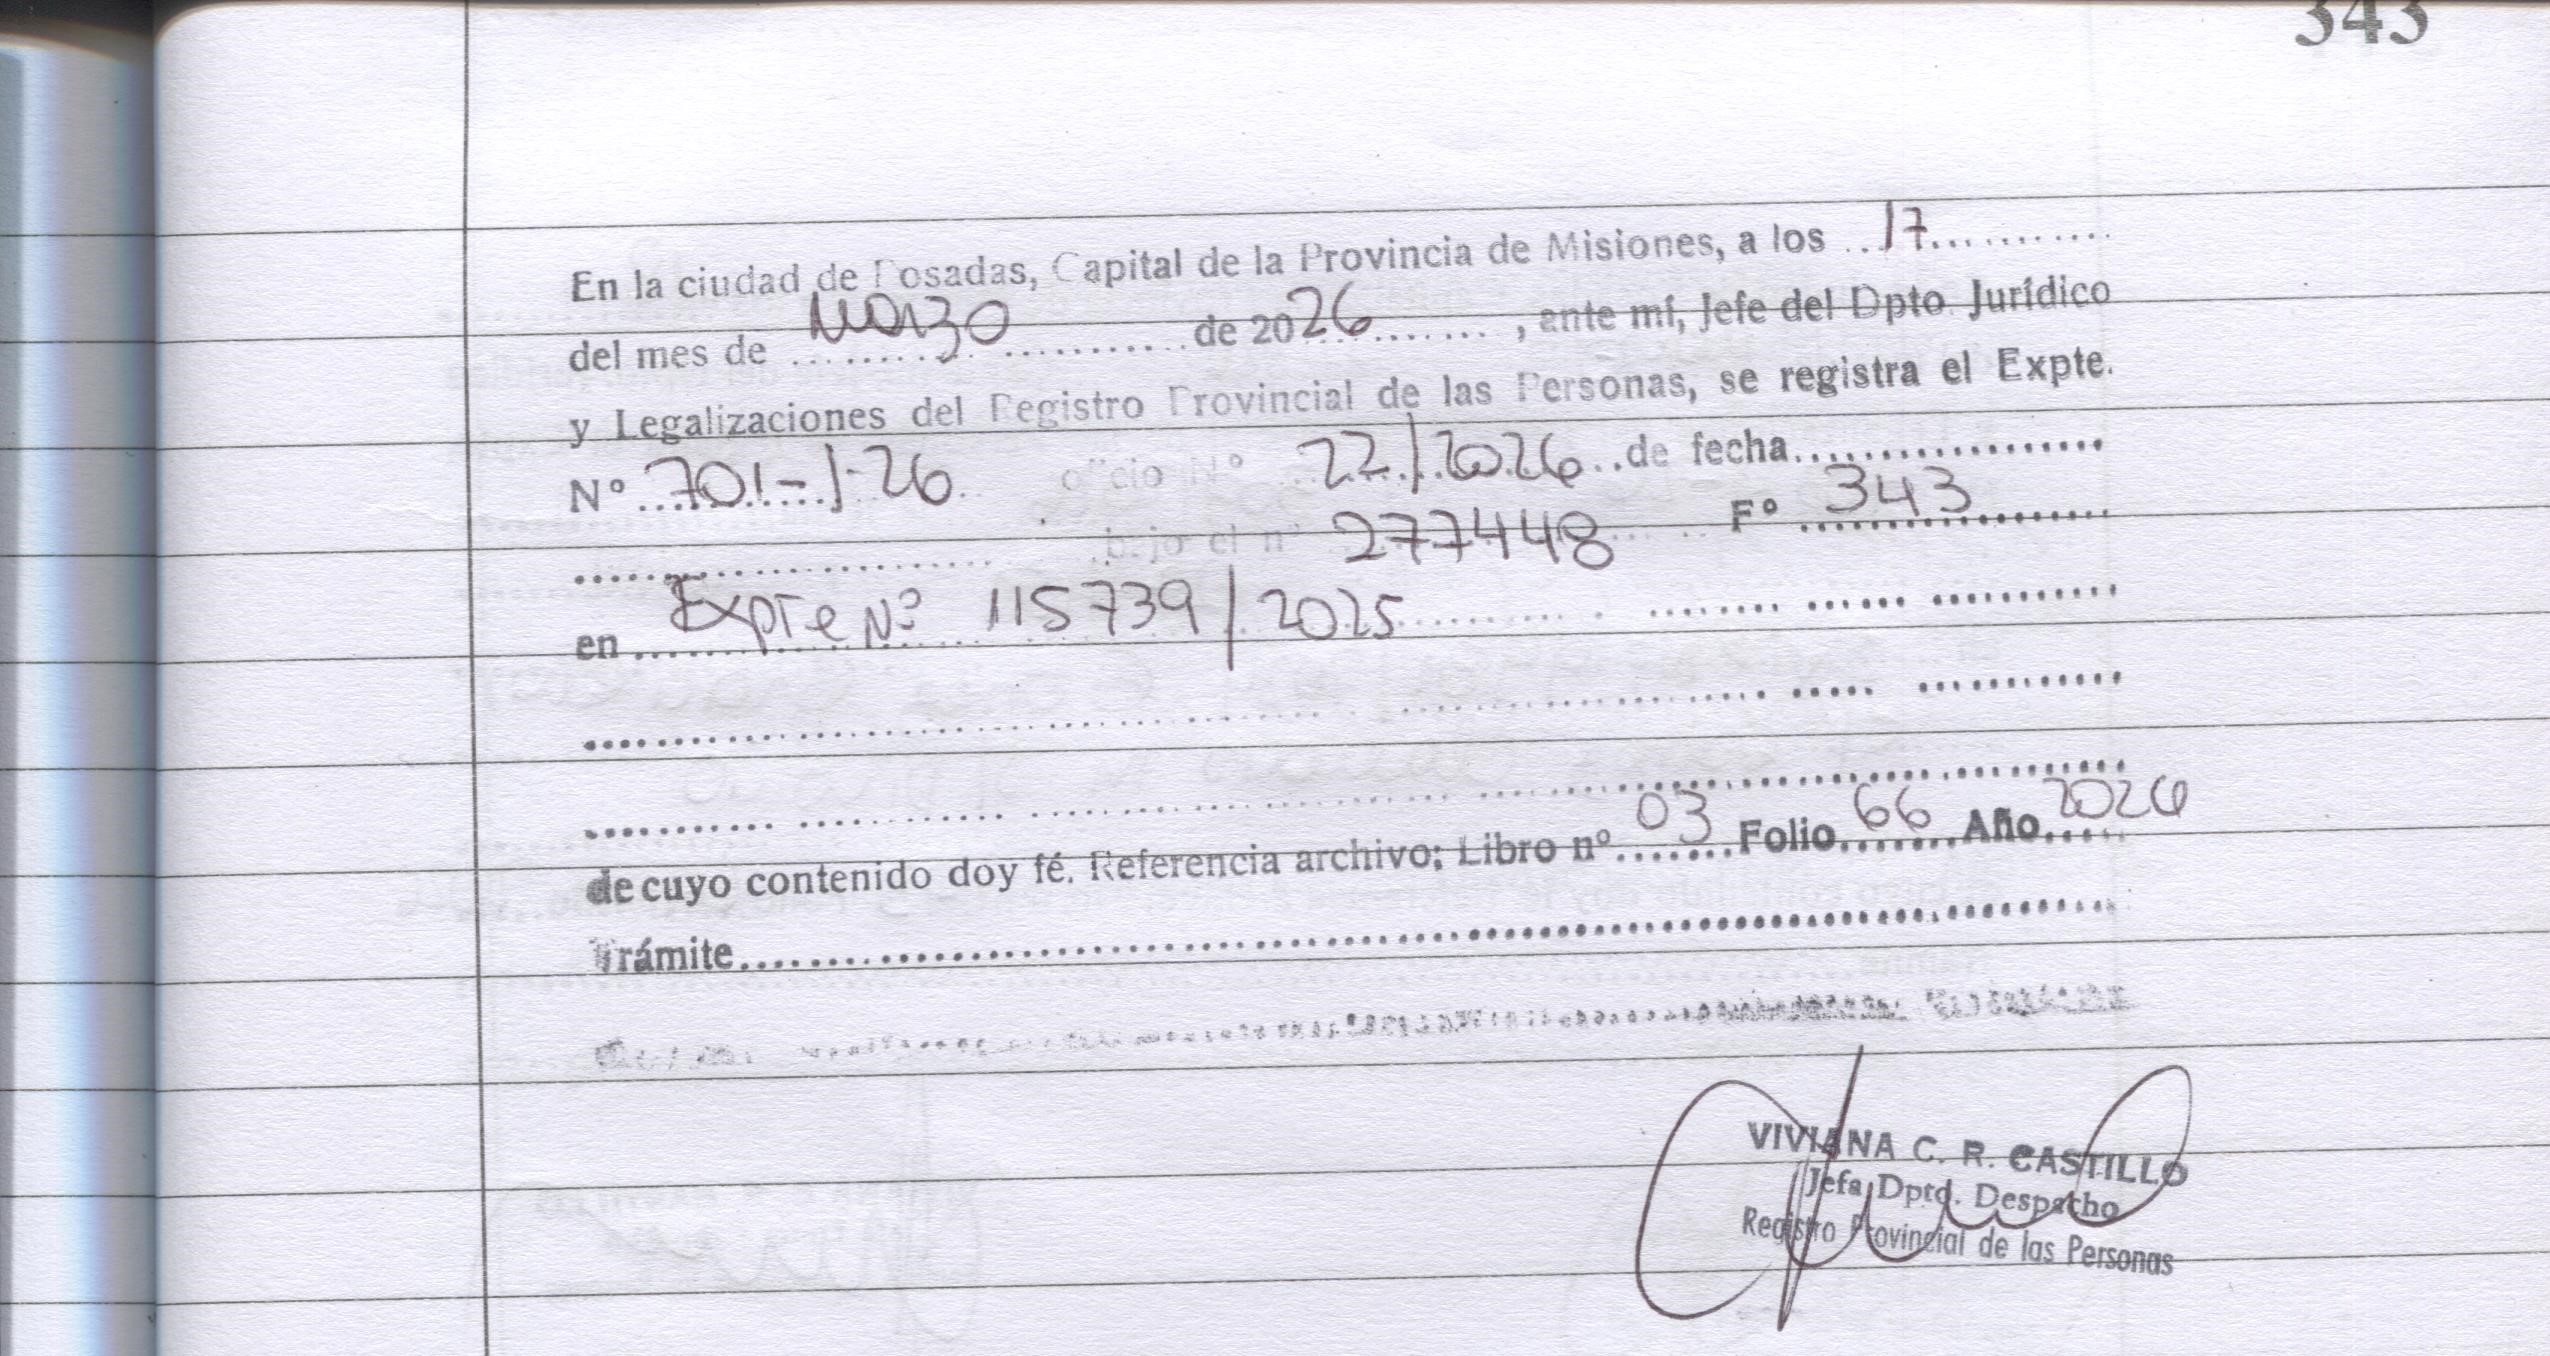 343
En la ciudad de Posadas, Capital de la Provincia de Misiones, a los ...17............
del mes de ....Marzo............... de 2026........., ante mí, Jefe del Dpto Jurídico
y Legalizaciones del Registro Provincial de las Personas, se registra el Expte.
Nº...701-J-26.. oficio Nº 22/2026..de fecha...................
....................... bajo el nº 277448...... Fº ...343...............
en Expte Nº 115739/2025...................................
.............................................................
.............................................................
de cuyo contenido doy fé. Referencia archivo; Libro nº..03...Folio..66...Año 2026
Trámite.............................................................
VIVIANA C. R. CASTILLO
Jefa Dpto. Despacho
Registro Provincial de las Personas